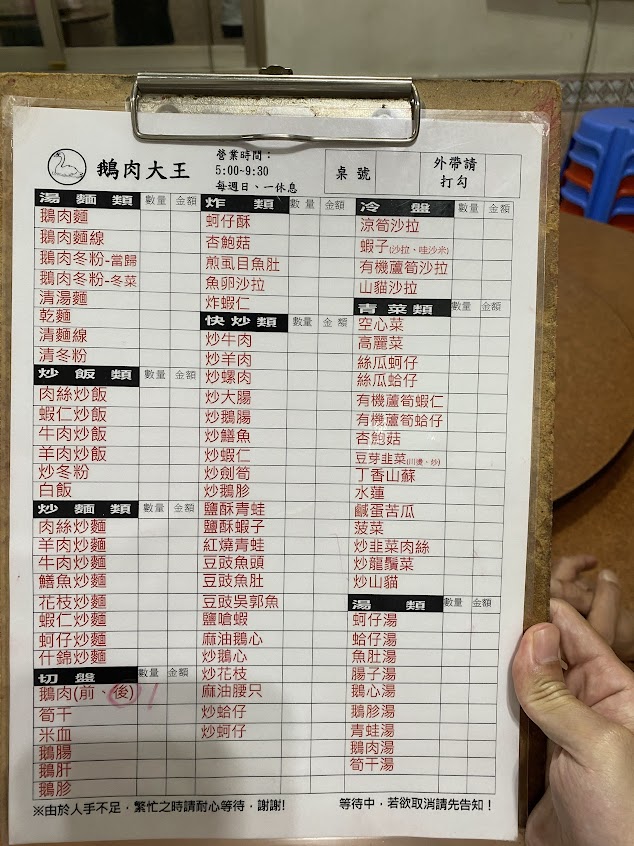 鵝肉大王
營業時間：
5:00~9:30
每週日、一休息
桌號
外帶請
打勾
湯麵類 數量 金額
鵝肉麵
鵝肉麵線
鵝肉冬粉-當歸
鵝肉冬粉-冬菜
清湯麵
乾麵
清麵線
清冬粉
炒飯類 數量 金額
肉絲炒飯
蝦仁炒飯
牛肉炒飯
羊肉炒飯
炒冬粉
白飯
炒麵類 數量 金額
肉絲炒麵
羊肉炒麵
牛肉炒麵
鱔魚炒麵
花枝炒麵
蝦仁炒麵
蚵仔炒麵
什錦炒麵
切盤 數量 金額
鵝肉(前、後) 1
筍干
米血
鵝腸
鵝肝
鵝胗
炸類 數量 金額
蚵仔酥
杏鮑菇
煎虱目魚肚
魚卵沙拉
炸蝦仁
快炒類 數量 金額
炒牛肉
炒羊肉
炒螺肉
炒大腸
炒鵝腸
炒鱔魚
炒蝦仁
炒劍筍
炒鵝胗
鹽酥青蛙
鹽酥蝦子
紅燒青蛙
豆豉魚頭
豆豉魚肚
豆豉吳郭魚
鹽嗆蝦
麻油鵝心
炒鵝心
炒花枝
麻油腰只
炒蛤仔
炒蚵仔
冷盤 數量 金額
涼筍沙拉
蝦子(沙拉、哇沙米)
有機蘆筍沙拉
山貓沙拉
青菜類 數量 金額
空心菜
高麗菜
絲瓜蚵仔
絲瓜蛤仔
有機蘆筍蝦仁
有機蘆筍蛤仔
杏鮑菇
豆芽韭菜(川燙、炒)
丁香山蘇
水蓮
鹹蛋苦瓜
菠菜
炒韭菜肉絲
炒龍鬚菜
炒山貓
湯類 數量 金額
蚵仔湯
蛤仔湯
魚肚湯
腸子湯
鵝心湯
鵝胗湯
青蛙湯
鵝肉湯
筍干湯
※由於人手不足，繁忙之時請耐心等待，謝謝! 等待中，若欲取消請先告知！